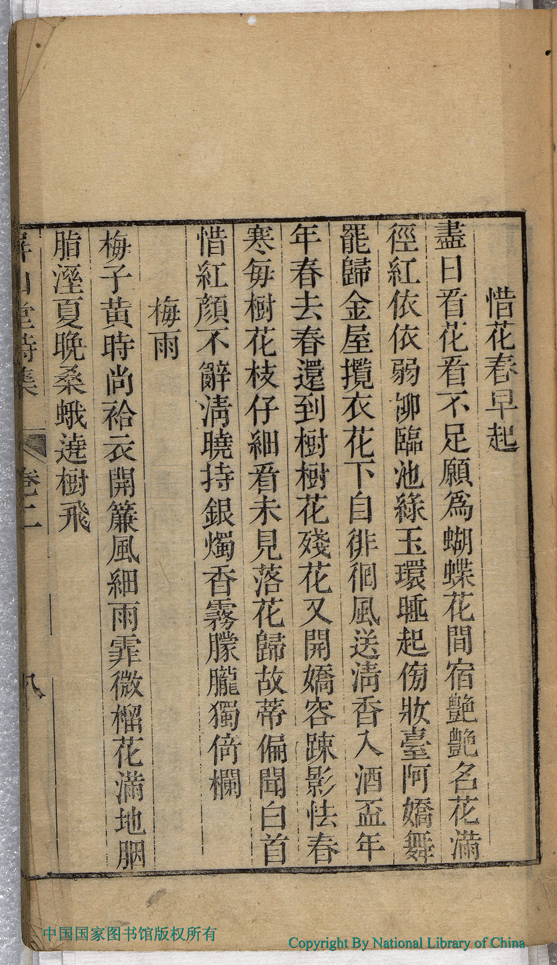 惜花春早起
盡日看花看不足願爲蝴蝶花間宿艷艷名花滿
徑紅依依弱柳臨池綠玉環睡起傍妝臺阿嬌舞
罷歸金屋攬衣花下自徘徊風送清香入酒盃年
年春去春還到樹樹花殘花又開嬌容踈影怯春
寒每樹花枝仔細看未見落花歸故蒂偏聞白首
惜紅顏不辭清曉持銀燭香霧朦朧獨倚欄
梅雨
梅子黃時尚袷衣開簾風細雨霏微榴花滿地胭
脂溼夏晚桑蛾遶樹飛
山堂詩集 卷二 八
中国国家图书馆版权所有
Copyright By National Library of China